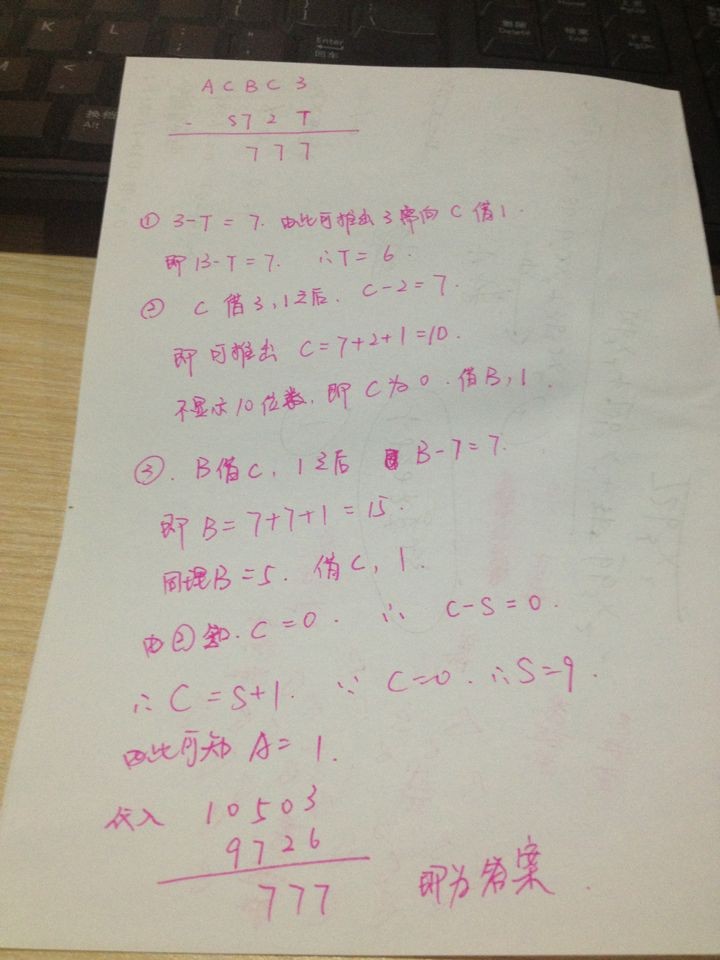 A C B C 3
- S 7 2 T
7 7 7
① 3-T = 7. 由此可推出 3 需向 C 借 1.
即 13-T = 7. ∴T = 6.
② C 借 3, 1 之后. C-2 = 7.
即可推出 C = 7+2+1 = 10.
不显示 10 位数, 即 C 为 0. 借 B, 1.
③. B 借 C, 1 之后 B-7 = 7.
即 B = 7+7+1 = 15.
同理 B = 5. 借 C, 1.
由②知. C = 0. ∴ C-S = 0.
∴ C = S+1. ∵ C=0. ∴S=9.
由此可知 A = 1.
代入 1 0 5 0 3
9 7 2 6
7 7 7 即为答案.
Enter
回车
删除
Delete
换档
Alt
K
L
M